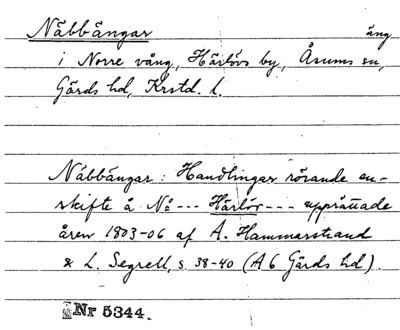 Näbbängar äng
i Norre vång, Härlövs by, Åsums sn,
Gärds hd, Krstd. l.
Näbbängar: Handlingar rörande en-
skifte å No --- Härlöv --- upprättade
åren 1803-06 af A. Hammarstrand
& L. Segrell, s. 38-40 (A 6 Gärds hd).
Nr 5344.